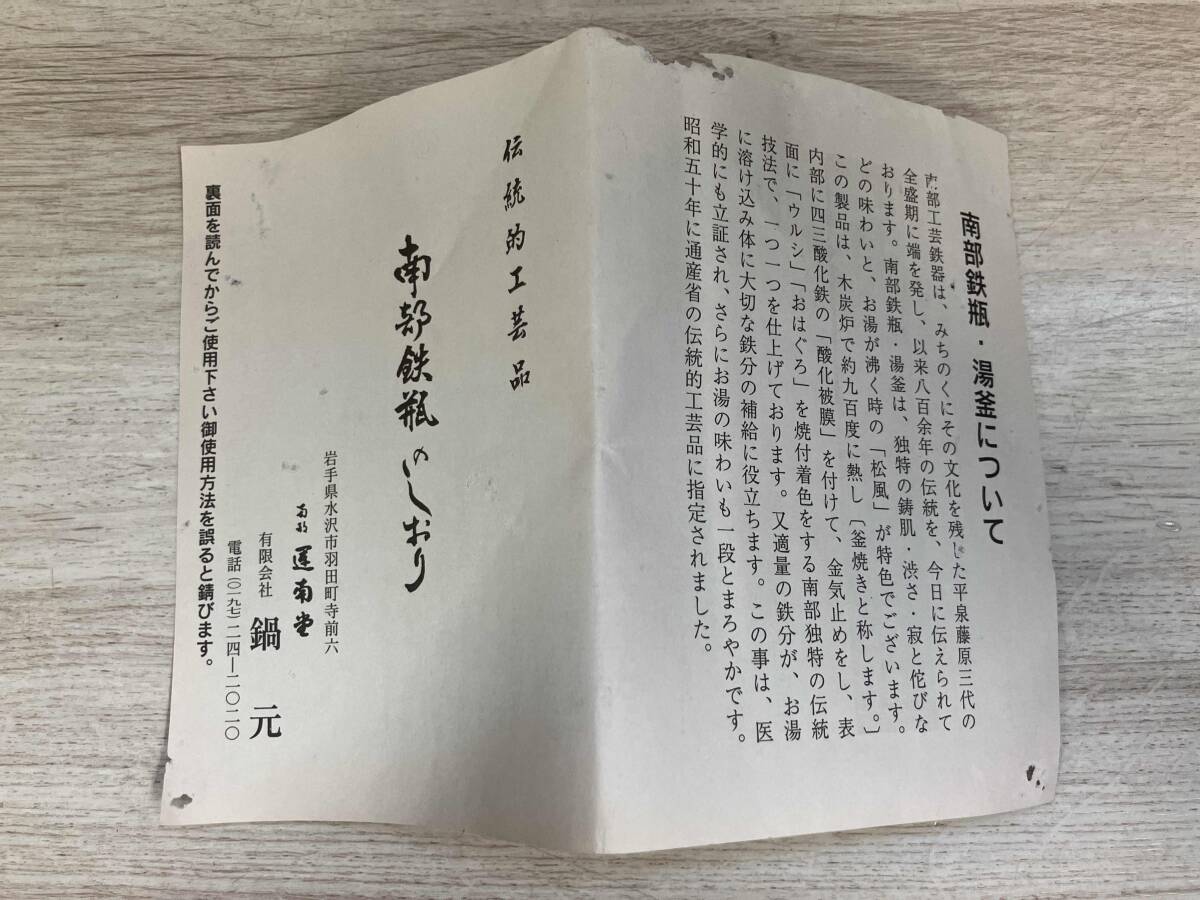 南部鉄瓶・湯釜について
南部工芸鉄器は、みちのくにその文化を残した平泉藤原三代の
全盛期に端を発し、以来八百余年の伝統を、今日に伝えられて
おります。南部鉄瓶・湯釜は、独特の鋳肌・渋さ・寂と侘びな
どの味わいと、お湯が沸く時の「松風」が特色でございます。
この製品は、木炭炉で約九百度に熱し〔釜焼きと称します。〕
内部に四三酸化鉄の「酸化被膜」を付けて、金気止めをし、表
面に「ウルシ」「おはぐろ」を焼付着色をする南部独特の伝統
技法で、一つ一つを仕上げております。又適量の鉄分が、お湯
に溶け込み体に大切な鉄分の補給に役立ちます。この事は、医
学的にも立証され、さらにお湯の味わいも一段とまろやかです。
昭和五十年に通産省の伝統的工芸品に指定されました。
伝統的工芸品
南部鉄瓶のしおり
岩手県水沢市羽田町寺前六
南部 運南堂
有限会社 鍋元
電話(〇一九七)二四―二〇二〇
裏面を読んでからご使用下さい御使用方法を誤ると錆びます。